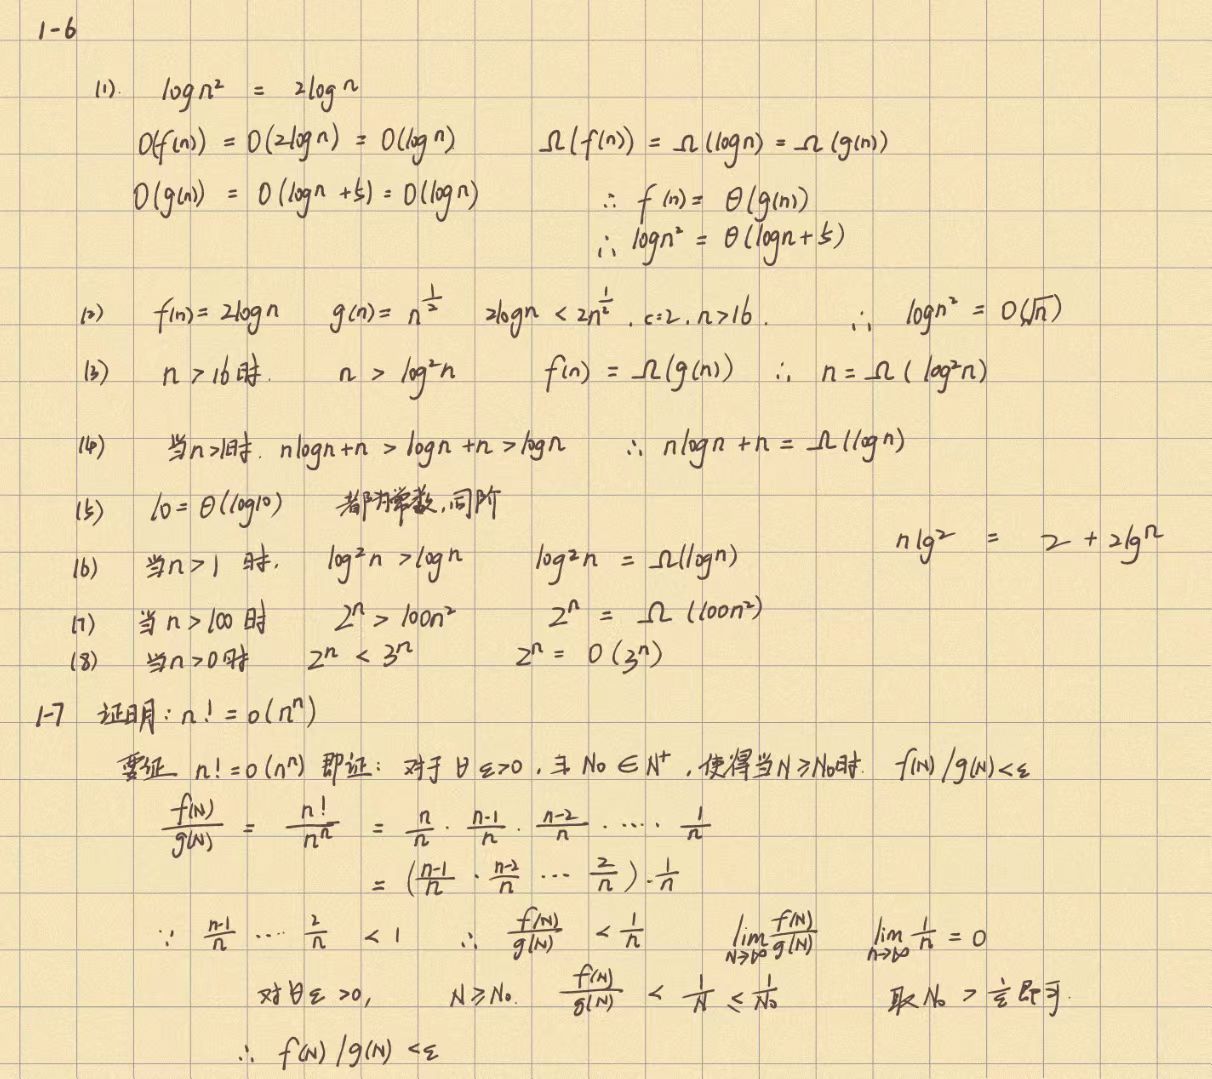 1-6
(1). logn² = 2logn
O(f(n)) = O(2logn) = O(logn) Ω(f(n)) = Ω(logn) = Ω(g(n))
O(g(n)) = O(logn +5) = O(logn) ∴ f(n) = θ(g(n))
∴ logn² = θ(logn+5)
(2) f(n) = 2logn g(n) = n^{1/2} 2logn < 2n^{1/2}, c=2, n>16. ∴ logn² = O(√n)
(3) n>16时. n > log²n f(n) = Ω(g(n)) ∴ n = Ω(log²n)
(4) 当n>1时. nlogn+n > logn+n > logn ∴ nlogn+n = Ω(logn)
(5) 10 = θ(log10) 都为常数,同阶
nlg² = 2 + 2lgn
(6) 当n>1 时. log²n > logn log²n = Ω(logn)
(7) 当n>100时 2ⁿ > 100n² 2ⁿ = Ω(100n²)
(8) 当n>0时 2ⁿ < 3ⁿ 2ⁿ = O(3ⁿ)
1-7 证明: n! = o(nⁿ)
要证 n! = o(nⁿ) 即证: 对于∀ε>0, ∃N₀∈N⁺, 使得当N≥N₀时. f(N)/g(N)<ε
f(N)/g(N) = n!/nⁿ = n/n · (n-1)/n · (n-2)/n · ···· 1/n
= ((n-1)/n · (n-2)/n ··· 2/n) · 1/n
∵ (n-1)/n ···· 2/n < 1 ∴ f(N)/g(N) < 1/n lim_{N→∞} f(N)/g(N) lim_{n→∞} 1/n = 0
对∀ε>0, N≥N₀. f(N)/g(N) < 1/N ≤ 1/N₀ 取N₀ > 1/ε 即可.
∴ f(N)/g(N) <ε